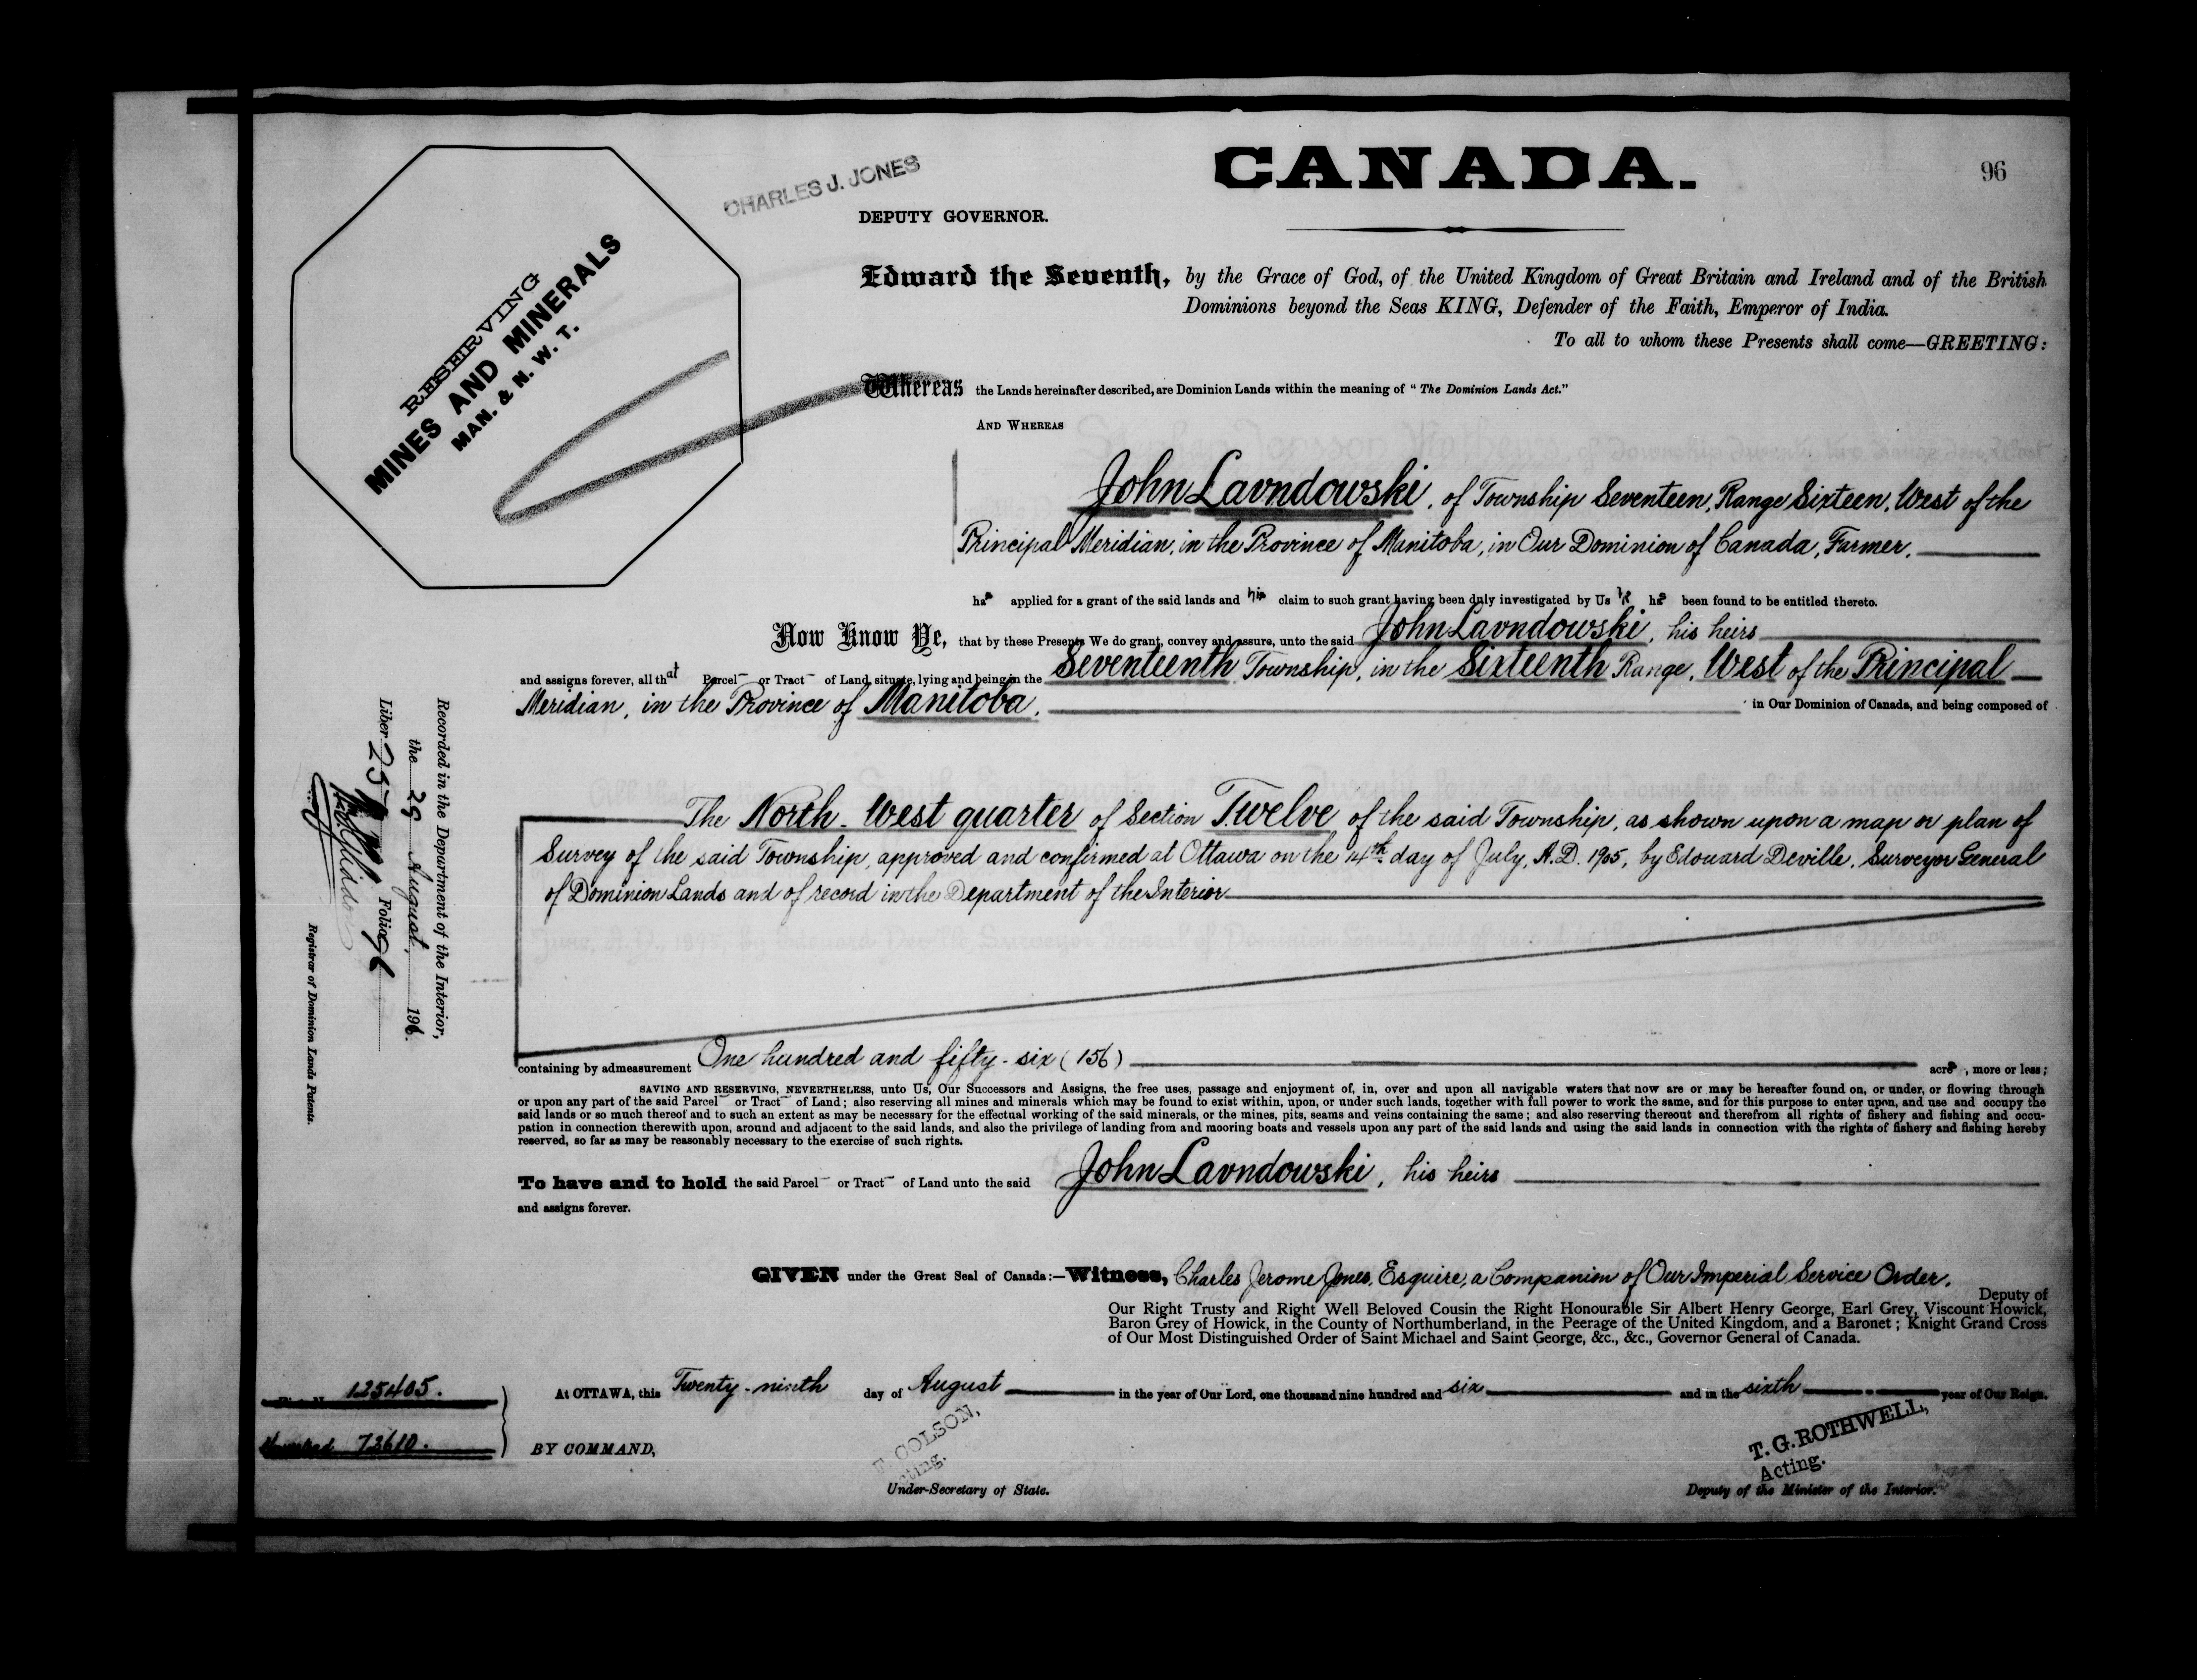 CANADA.
96
CHARLES J. JONES
DEPUTY GOVERNOR.
RESERVING
MINES AND MINERALS
MAN. & N. W. T.
Edward the Seventh, by the Grace of God, of the United Kingdom of Great Britain and Ireland and of the British
Dominions beyond the Seas KING, Defender of the Faith, Emperor of India.
To all to whom these Presents shall come—GREETING:
Whereas the Lands hereinafter described, are Dominion Lands within the meaning of "The Dominion Lands Act."
AND WHEREAS
John Lavndowski, of Township Seventeen, Range Sixteen, West of the
Principal Meridian, in the Province of Manitoba, in Our Dominion of Canada, Farmer.
has applied for a grant of the said lands and his claim to such grant having been duly investigated by Us he has been found to be entitled thereto.
Now Know Ye, that by these Presents We do grant, convey and assure, unto the said John Lavndowski, his heirs
and assigns forever, all that Parcel or Tract of Land, situate, lying and being in the Seventeenth Township, in the Sixteenth Range, West of the Principal
Meridian, in the Province of Manitoba. in Our Dominion of Canada, and being composed of
The North-West quarter of Section Twelve of the said Township, as shown upon a map or plan of
Survey of the said Township, approved and confirmed at Ottawa on the 14th day of July, A.D. 1905, by Edouard Deville, Surveyor General
of Dominion Lands and of record in the Department of the Interior
containing by admeasurement One hundred and fifty-six (156) acres, more or less;
SAVING AND RESERVING, NEVERTHELESS, unto Us, Our Successors and Assigns, the free uses, passage and enjoyment of, in, over and upon all navigable waters that now are or may be hereafter found on, or under, or flowing through
or upon any part of the said Parcel or Tract of Land; also reserving all mines and minerals which may be found to exist within, upon, or under such lands, together with full power to work the same, and for this purpose to enter upon, and use and occupy the
said lands or so much thereof and to such an extent as may be necessary for the effectual working of the said minerals, or the mines, pits, seams and veins containing the same; and also reserving thereout and therefrom all rights of fishery and fishing and occu-
pation in connection therewith upon, around and adjacent to the said lands, and also the privilege of landing from and mooring boats and vessels upon any part of the said lands and using the said lands in connection with the rights of fishery and fishing hereby
reserved, so far as may be reasonably necessary to the exercise of such rights.
To have and to hold the said Parcel or Tract of Land unto the said John Lavndowski, his heirs
and assigns forever.
GIVEN under the Great Seal of Canada:—Witness, Charles Jerome Jones, Esquire, a Companion of Our Imperial Service Order.
Deputy of
Our Right Trusty and Right Well Beloved Cousin the Right Honourable Sir Albert Henry George, Earl Grey, Viscount Howick,
Baron Grey of Howick, in the County of Northumberland, in the Peerage of the United Kingdom, and a Baronet; Knight Grand Cross
of Our Most Distinguished Order of Saint Michael and Saint George, &c., &c., Governor General of Canada.
At OTTAWA, this Twenty-ninth day of August in the year of Our Lord, one thousand nine hundred and six and in the sixth year of Our Reign.
BY COMMAND,
COLSON,
Acting.
Under-Secretary of State.
T. G. ROTHWELL,
Acting.
Deputy of the Minister of the Interior.
125405.
Homestead 72610.
Recorded in the Department of the Interior,
the 29 August, 1906.
Liber 257 Folio 96
Registrar of Dominion Lands Patents.